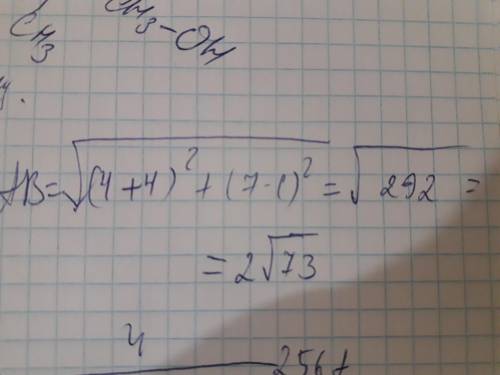 CH₃ CH₃-OH
AB=√((4+4)²+(7-1)²)=√292=
=2√73
4
256+